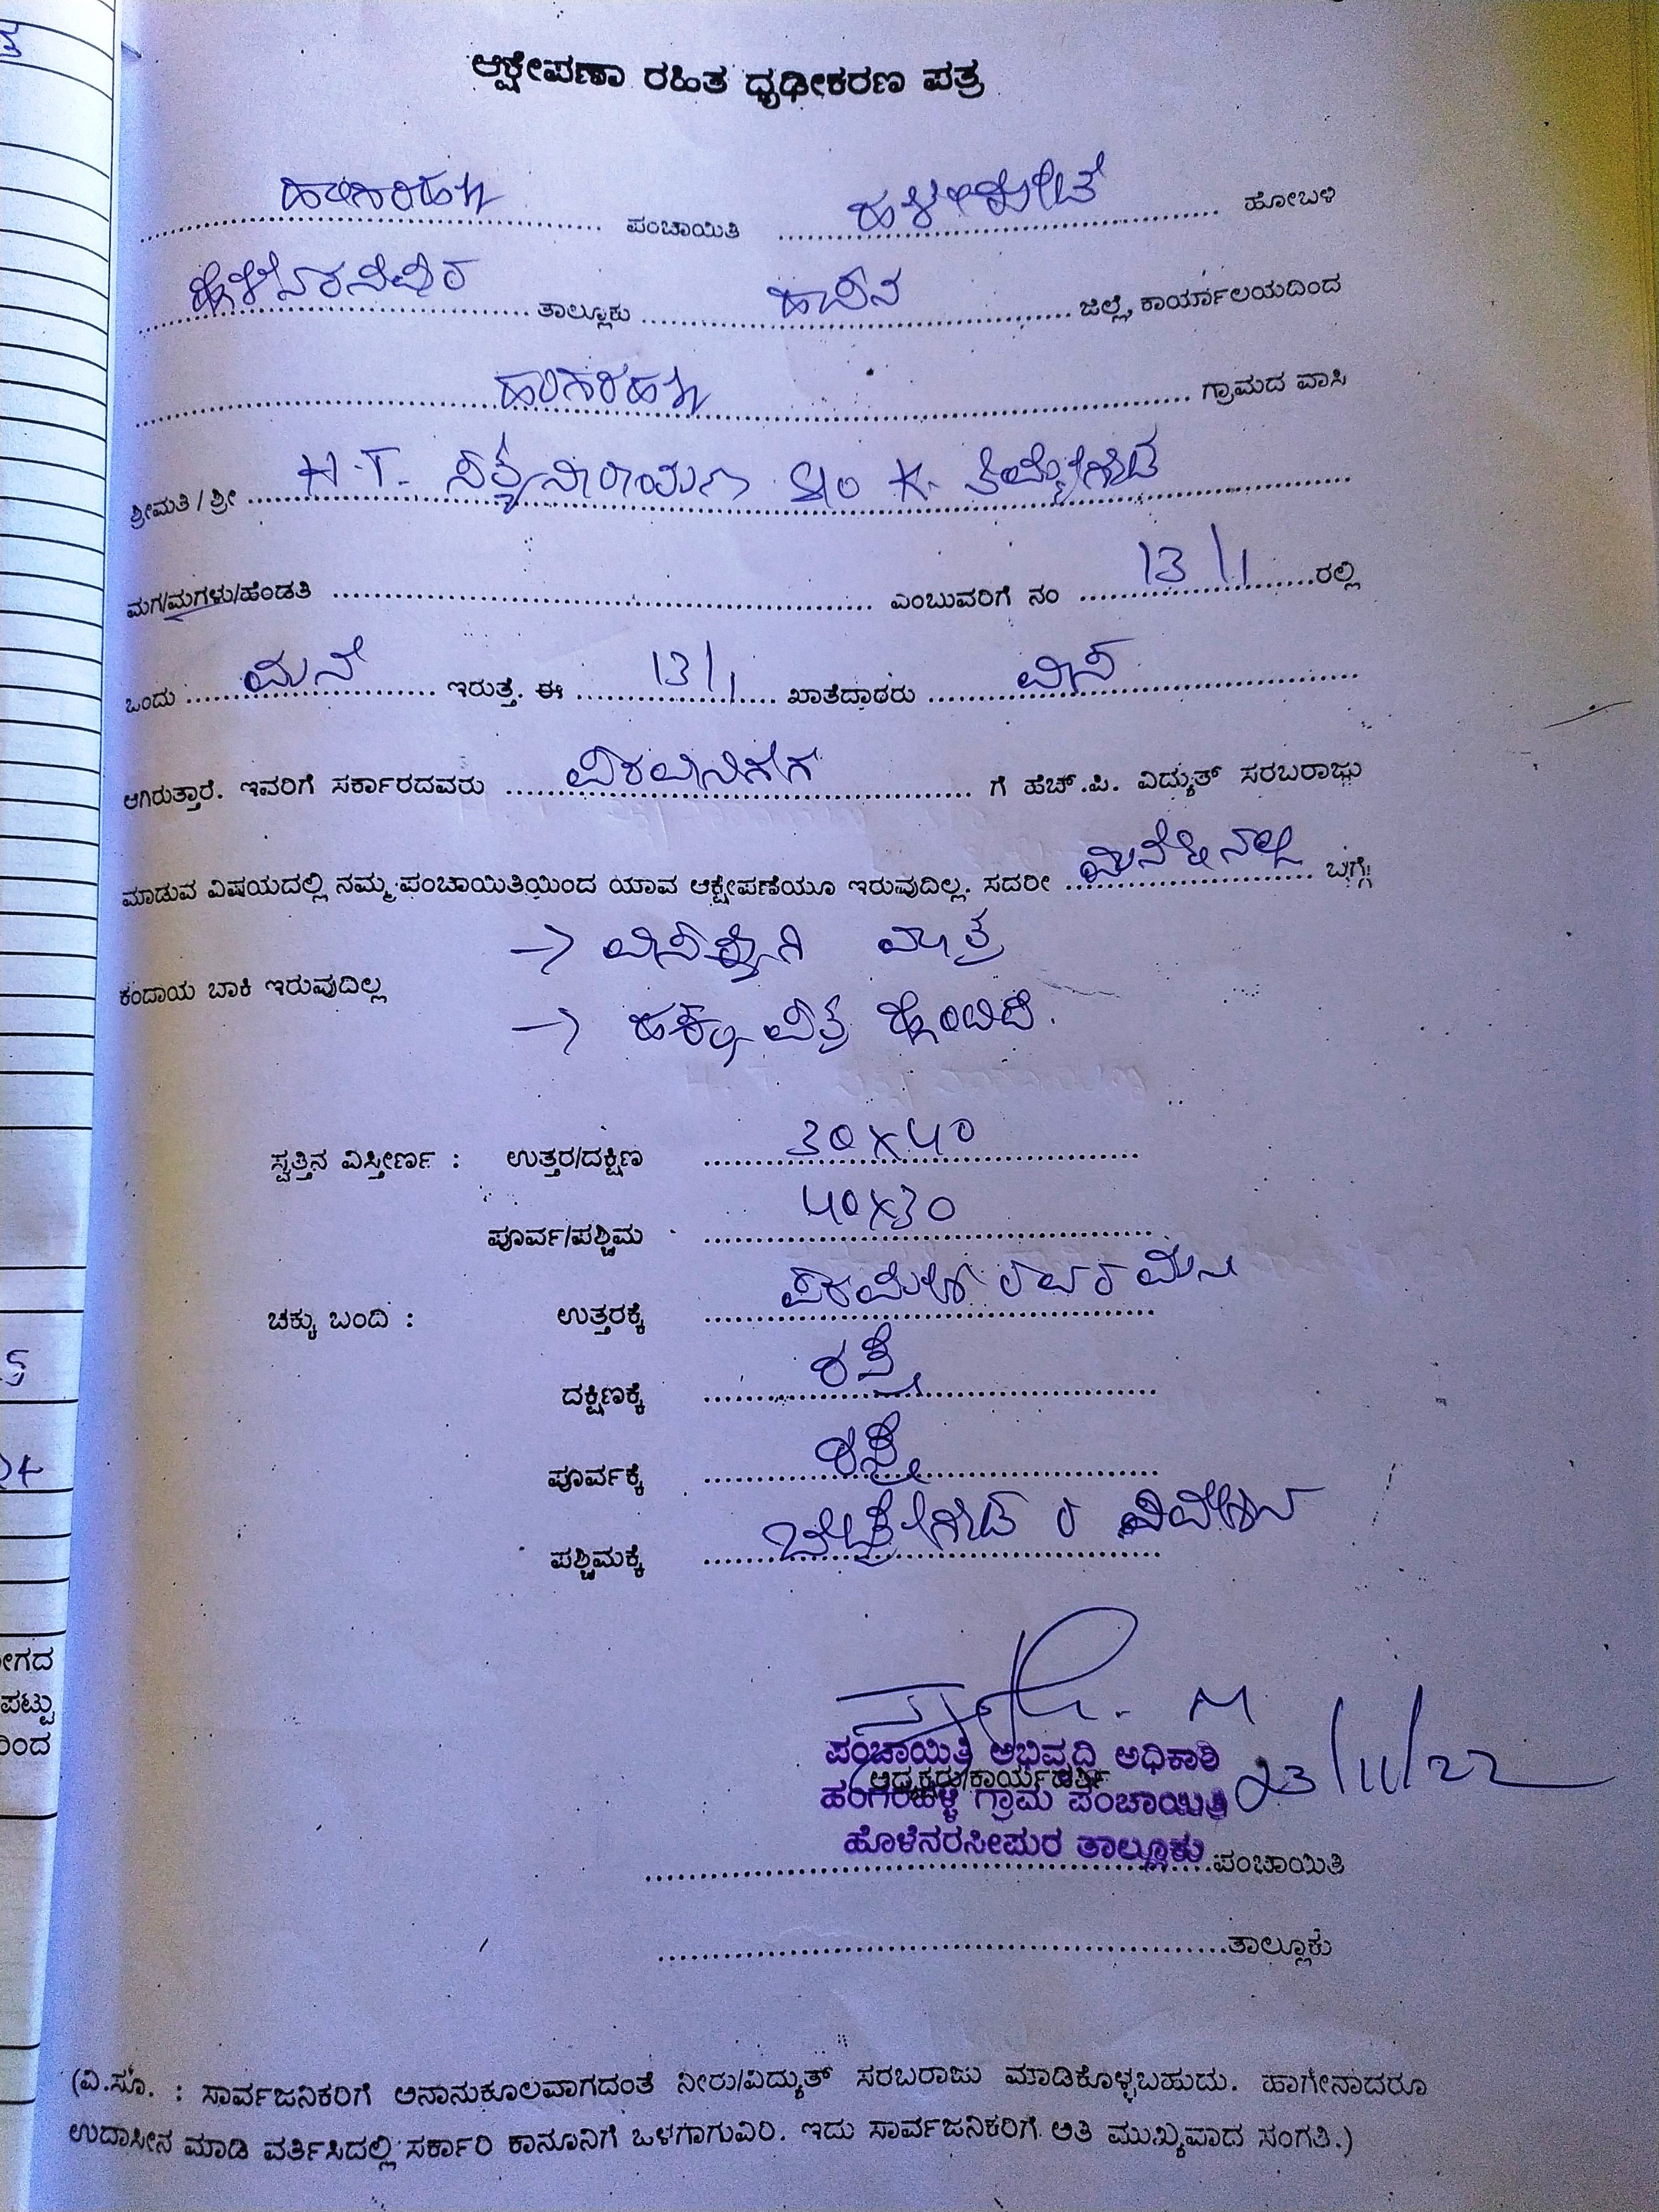 ಆಕ್ಷೇಪಣಾ ರಹಿತ ಧೃಢೀಕರಣ ಪತ್ರ
ಹರಿಗರಹಳ್ಳಿ ಪಂಚಾಯಿತಿ ಹಳೇಕೋಟೆ ಹೋಬಳಿ
ಹೊಳೆನರಸೀಪುರ ತಾಲ್ಲೂಕು ಹಾಸನ ಜಿಲ್ಲೆ, ಕಾರ್ಯಾಲಯದಿಂದ
ಗ್ರಾಮದ ವಾಸಿ
ಶ್ರೀಮತಿ / ಶ್ರೀ H.T. ಸತ್ಯನಾರಾಯಣ S/o K. ತಿಮ್ಮೇಗೌಡ
ಮಗ/ಮಗಳು/ಹೆಂಡತಿ ಎಂಬುವರಿಗೆ ನಂ 13/1 ರಲ್ಲಿ
ಒಂದು ಮನೆ ಇರುತ್ತೆ. ಈ 13/1 ಖಾತೆದಾರರು
ಆಗಿರುತ್ತಾರೆ. ಇವರಿಗೆ ಸರ್ಕಾರದವರು ಗೆ ಹೆಚ್.ಪಿ. ವಿದ್ಯುತ್ ಸರಬರಾಜು
ಮಾಡುವ ವಿಷಯದಲ್ಲಿ ನಮ್ಮ ಪಂಚಾಯಿತಿಯಿಂದ ಯಾವ ಆಕ್ಷೇಪಣೆಯೂ ಇರುವುದಿಲ್ಲ. ಸದರೀ ಬಗ್ಗೆ
ಕಂದಾಯ ಬಾಕಿ ಇರುವುದಿಲ್ಲ
→ ಮಾತ್ರ
→ ಹಕ್ಕು ಪತ್ರ ಹೊಂದಿದೆ.
ಸ್ವತ್ತಿನ ವಿಸ್ತೀರ್ಣ : ಉತ್ತರ/ದಕ್ಷಿಣ 30x40
ಪೂರ್ವ/ಪಶ್ಚಿಮ 40x30
ಚಕ್ಕು ಬಂದಿ : ಉತ್ತರಕ್ಕೆ
ದಕ್ಷಿಣಕ್ಕೆ ರಸ್ತೆ
ಪೂರ್ವಕ್ಕೆ ರಸ್ತೆ
ಪಶ್ಚಿಮಕ್ಕೆ
ಪಂಚಾಯಿತಿ ಅಭಿವೃದ್ಧಿ ಅಧಿಕಾರಿ 23/11/22
ಅಧ್ಯಕ್ಷರು/ಕಾರ್ಯದರ್ಶಿ
ಹರಿಗರಹಳ್ಳಿ ಗ್ರಾಮ ಪಂಚಾಯಿತಿ
ಹೊಳೆನರಸೀಪುರ ತಾಲ್ಲೂಕು
ಪಂಚಾಯಿತಿ
ತಾಲ್ಲೂಕು
(ವಿ.ಸೂ. : ಸಾರ್ವಜನಿಕರಿಗೆ ಅನಾನುಕೂಲವಾಗದಂತೆ ನೀರು/ವಿದ್ಯುತ್ ಸರಬರಾಜು ಮಾಡಿಕೊಳ್ಳಬಹುದು. ಹಾಗೇನಾದರೂ
ಉದಾಸೀನ ಮಾಡಿ ವರ್ತಿಸಿದಲ್ಲಿ ಸರ್ಕಾರಿ ಕಾನೂನಿಗೆ ಒಳಗಾಗುವಿರಿ. ಇದು ಸಾರ್ವಜನಿಕರಿಗೆ ಅತಿ ಮುಖ್ಯವಾದ ಸಂಗತಿ.)